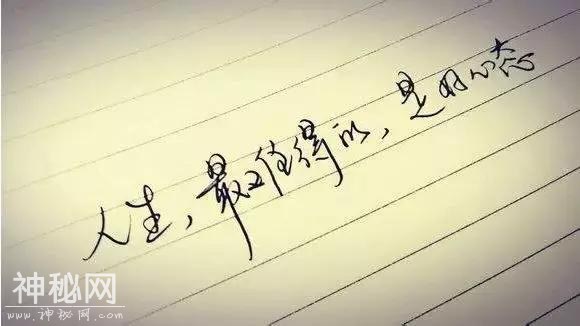 人生，最值得的，是好心态
神秘网
www.神秘网.com